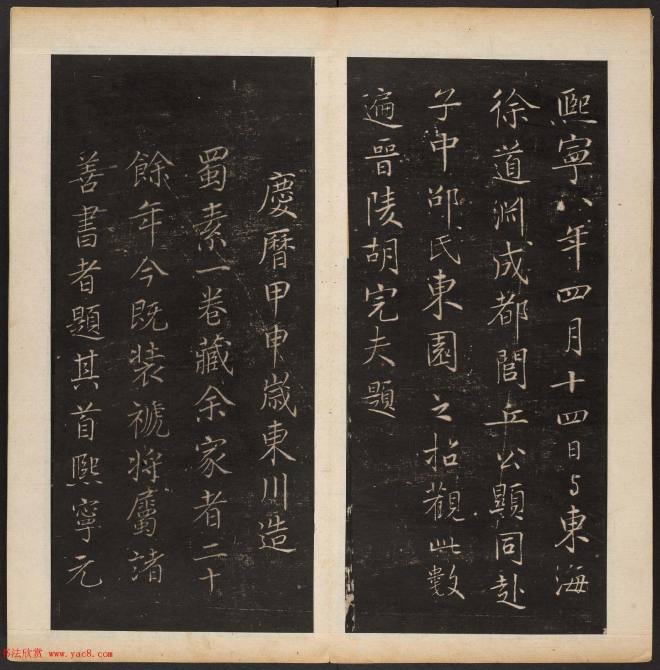 熙寧八年四月十四日与東海
徐道渊成都閭丘公顯同赴
子中邵氏東園之招觀此數
遍晉陵胡完夫題
慶曆甲申歲東川造
蜀素一卷藏余家者二十
餘年今既装褫將屬諸
善書者題其首熙寧元
书法欣赏 www.yac8.com